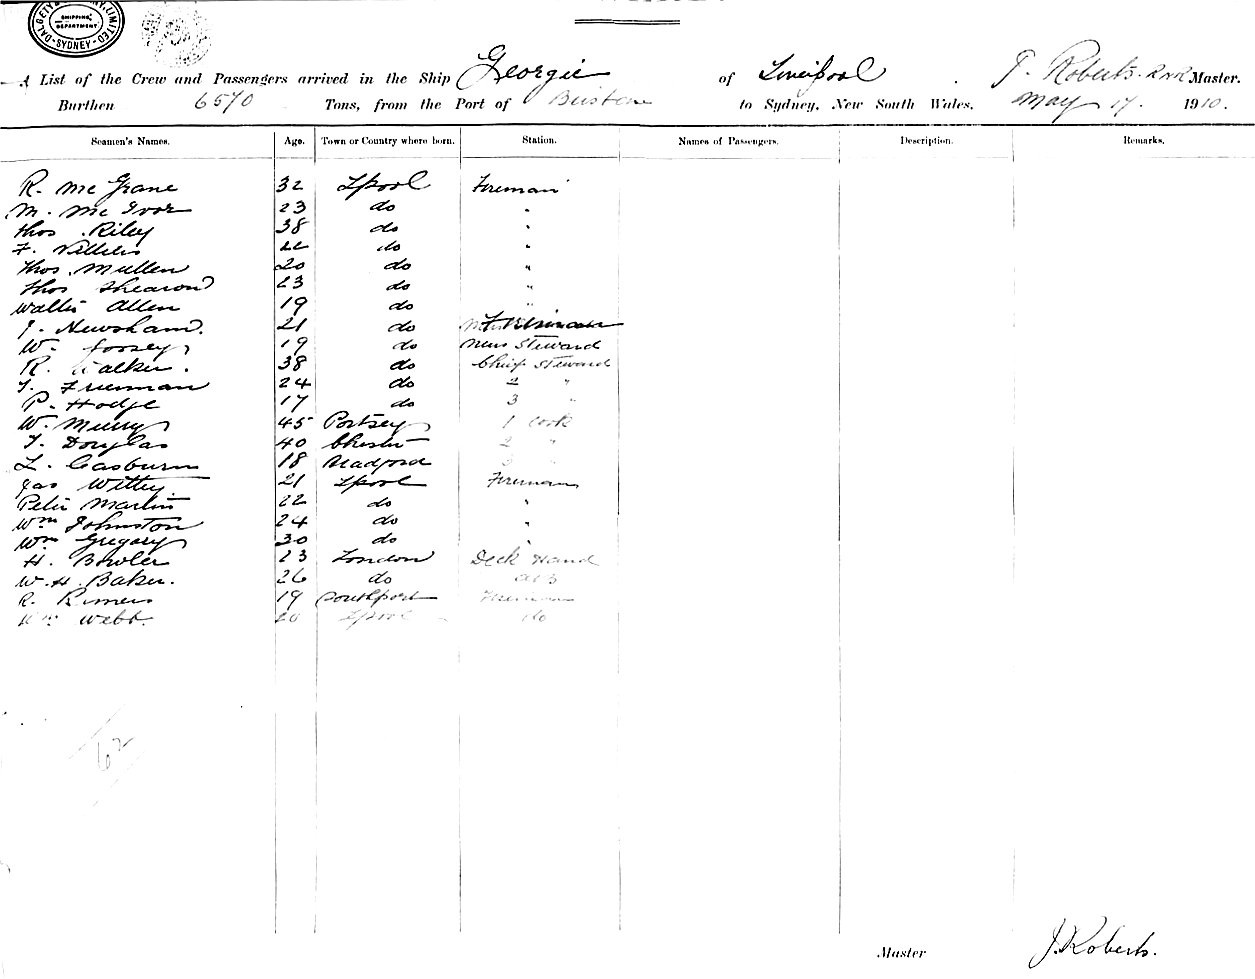 DALGETY & COMPANY, LIMITED
SHIPPING DEPARTMENT
SYDNEY
A List of the Crew and Passengers arrived in the Ship Georgic of Liverpool J. Roberts. RNR Master.
Burthen 6570 Tons, from the Port of Brisbane to Sydney, New South Wales, May 17. 1910.
Seamen's Names. Age. Town or Country where born. Station. Names of Passengers. Description. Remarks.
R. McGrane 32 Lpool Fireman
M. McIvor 23 do "
Thos. Riley 38 do "
F. 22 do "
Thos. Mullen 20 do "
Thos Shearon 23 do "
Walter Allen 19 do "
J. Newsham. 21 do
W. 19 do Mess Steward
R. Walker. 38 do Chief Steward
T. Freeman 24 do 2 "
P. Hodge 17 do 3 "
W. 45 Portsey 1 Cook
T. Douglas 40 Chester 2 "
L. Casburn 18 Bradford 3 "
Jas Withey 21 Lpool Fireman
Peter Martin 22 do "
Wm Johnston 24 do "
Wm Gregory 30 do "
H. Bowler 23 London Deck Hand
W. H. Baker. 26 do AB
R. Rimers 19 Southport Fireman
Wm Webb. 20 Lpool do
62
Master J. Roberts.